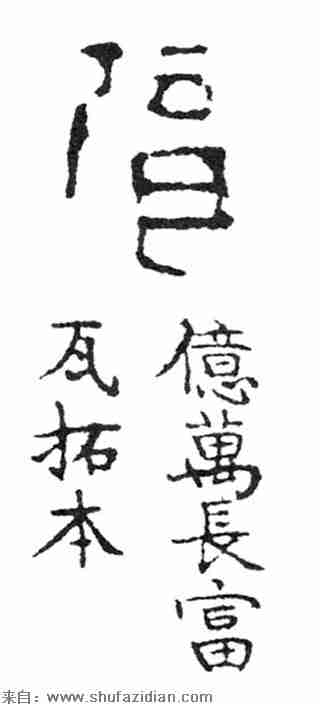 億萬長富
瓦拓本
来自：www.shufazidian.com